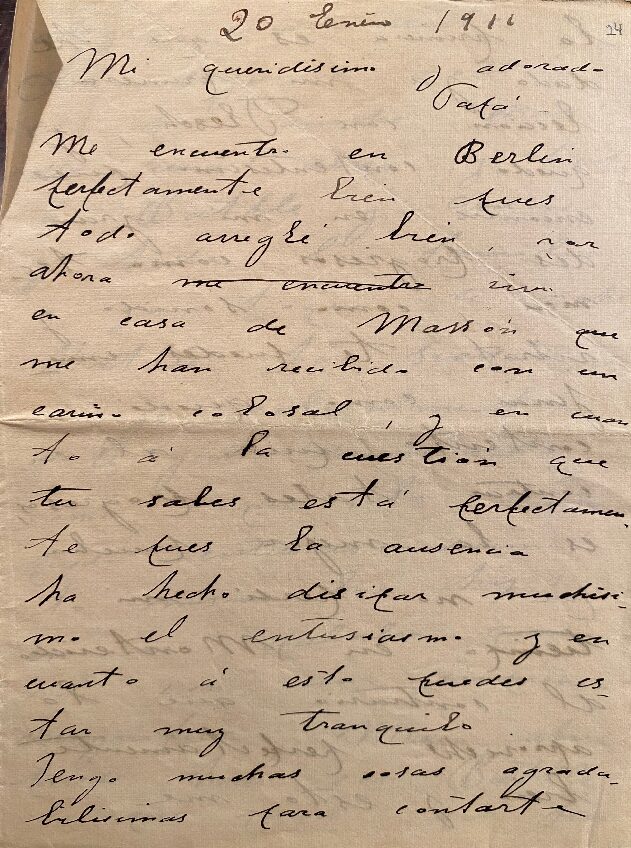 20 Enero 1911
24
Mi queridisimo y adorado
Papá
Me encuentro en Berlin
perfectamente bien pues
todo arreglé bien, por
ahora me encuentro vivo
en casa de Massón que
me han recibido con un
cariño colosal, y en cuan
to á la cuestión que
tu sabes está perfectamen-
te pues la ausencia
ha hecho disipar muchisi-
mo el entusiasmo y en
cuanto á esto puedes es
tar muy tranquilo
Tengo muchas cosas agrada-
bilisimas para contarte